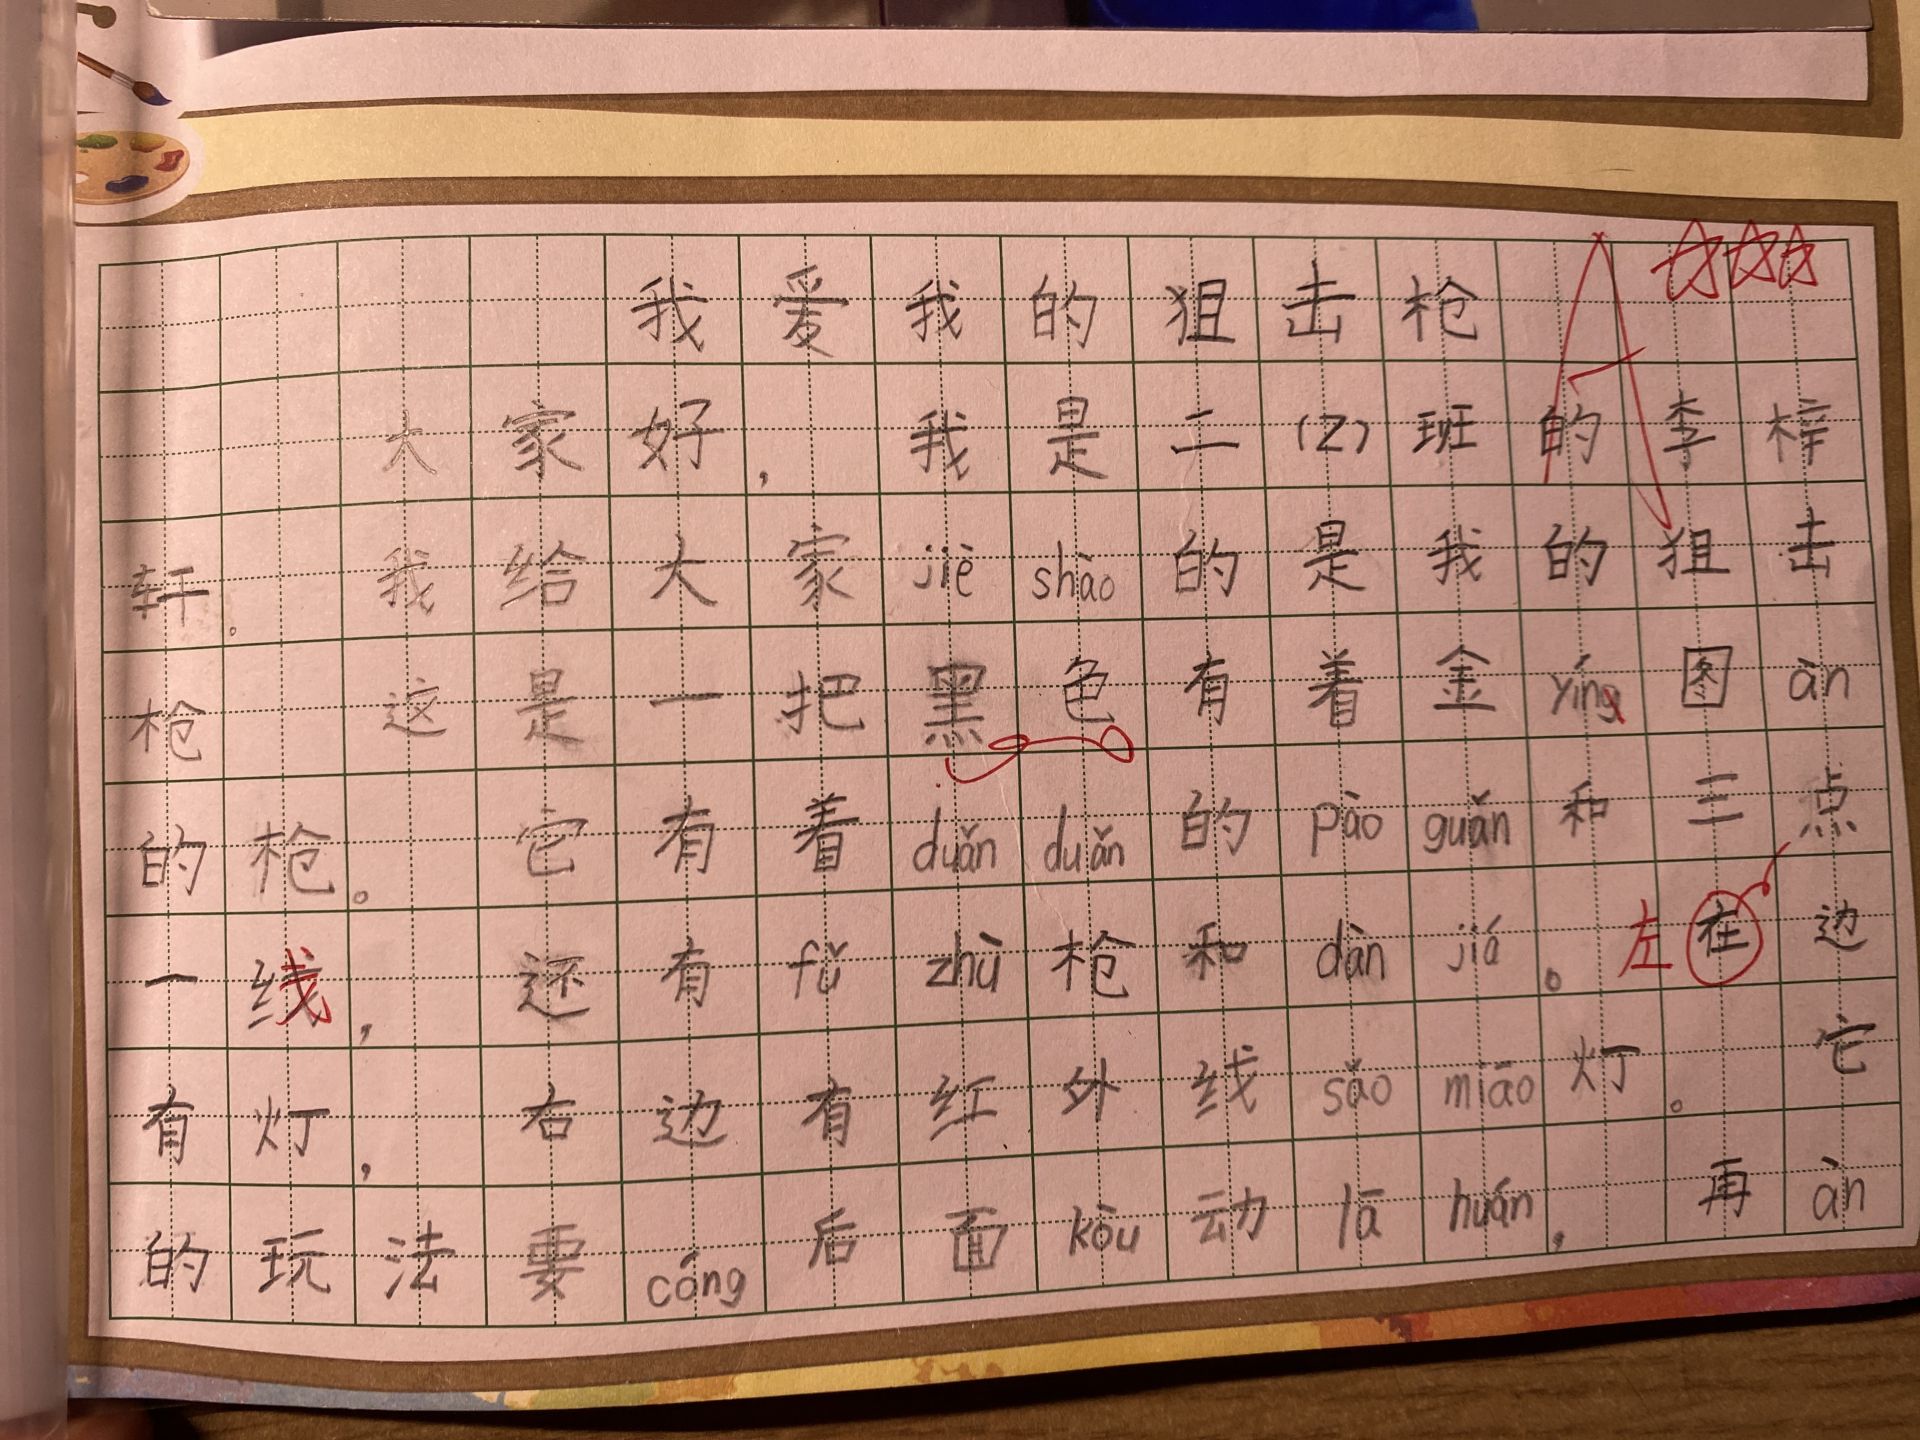 我爱我的狙击枪
大家好，我是二(2)班的李梓
轩。我给大家jiè shào的是我的狙击
枪 这是一把黑色有着金yíng图àn
的枪。它有着duǎn duǎn的pào guǎn和三点
一线，还有fǔ zhù枪和dàn jiá。左在边
有灯，右边有红外线sǎo miāo灯。它
的玩法要cóng后面kòu动lā huán，再àn